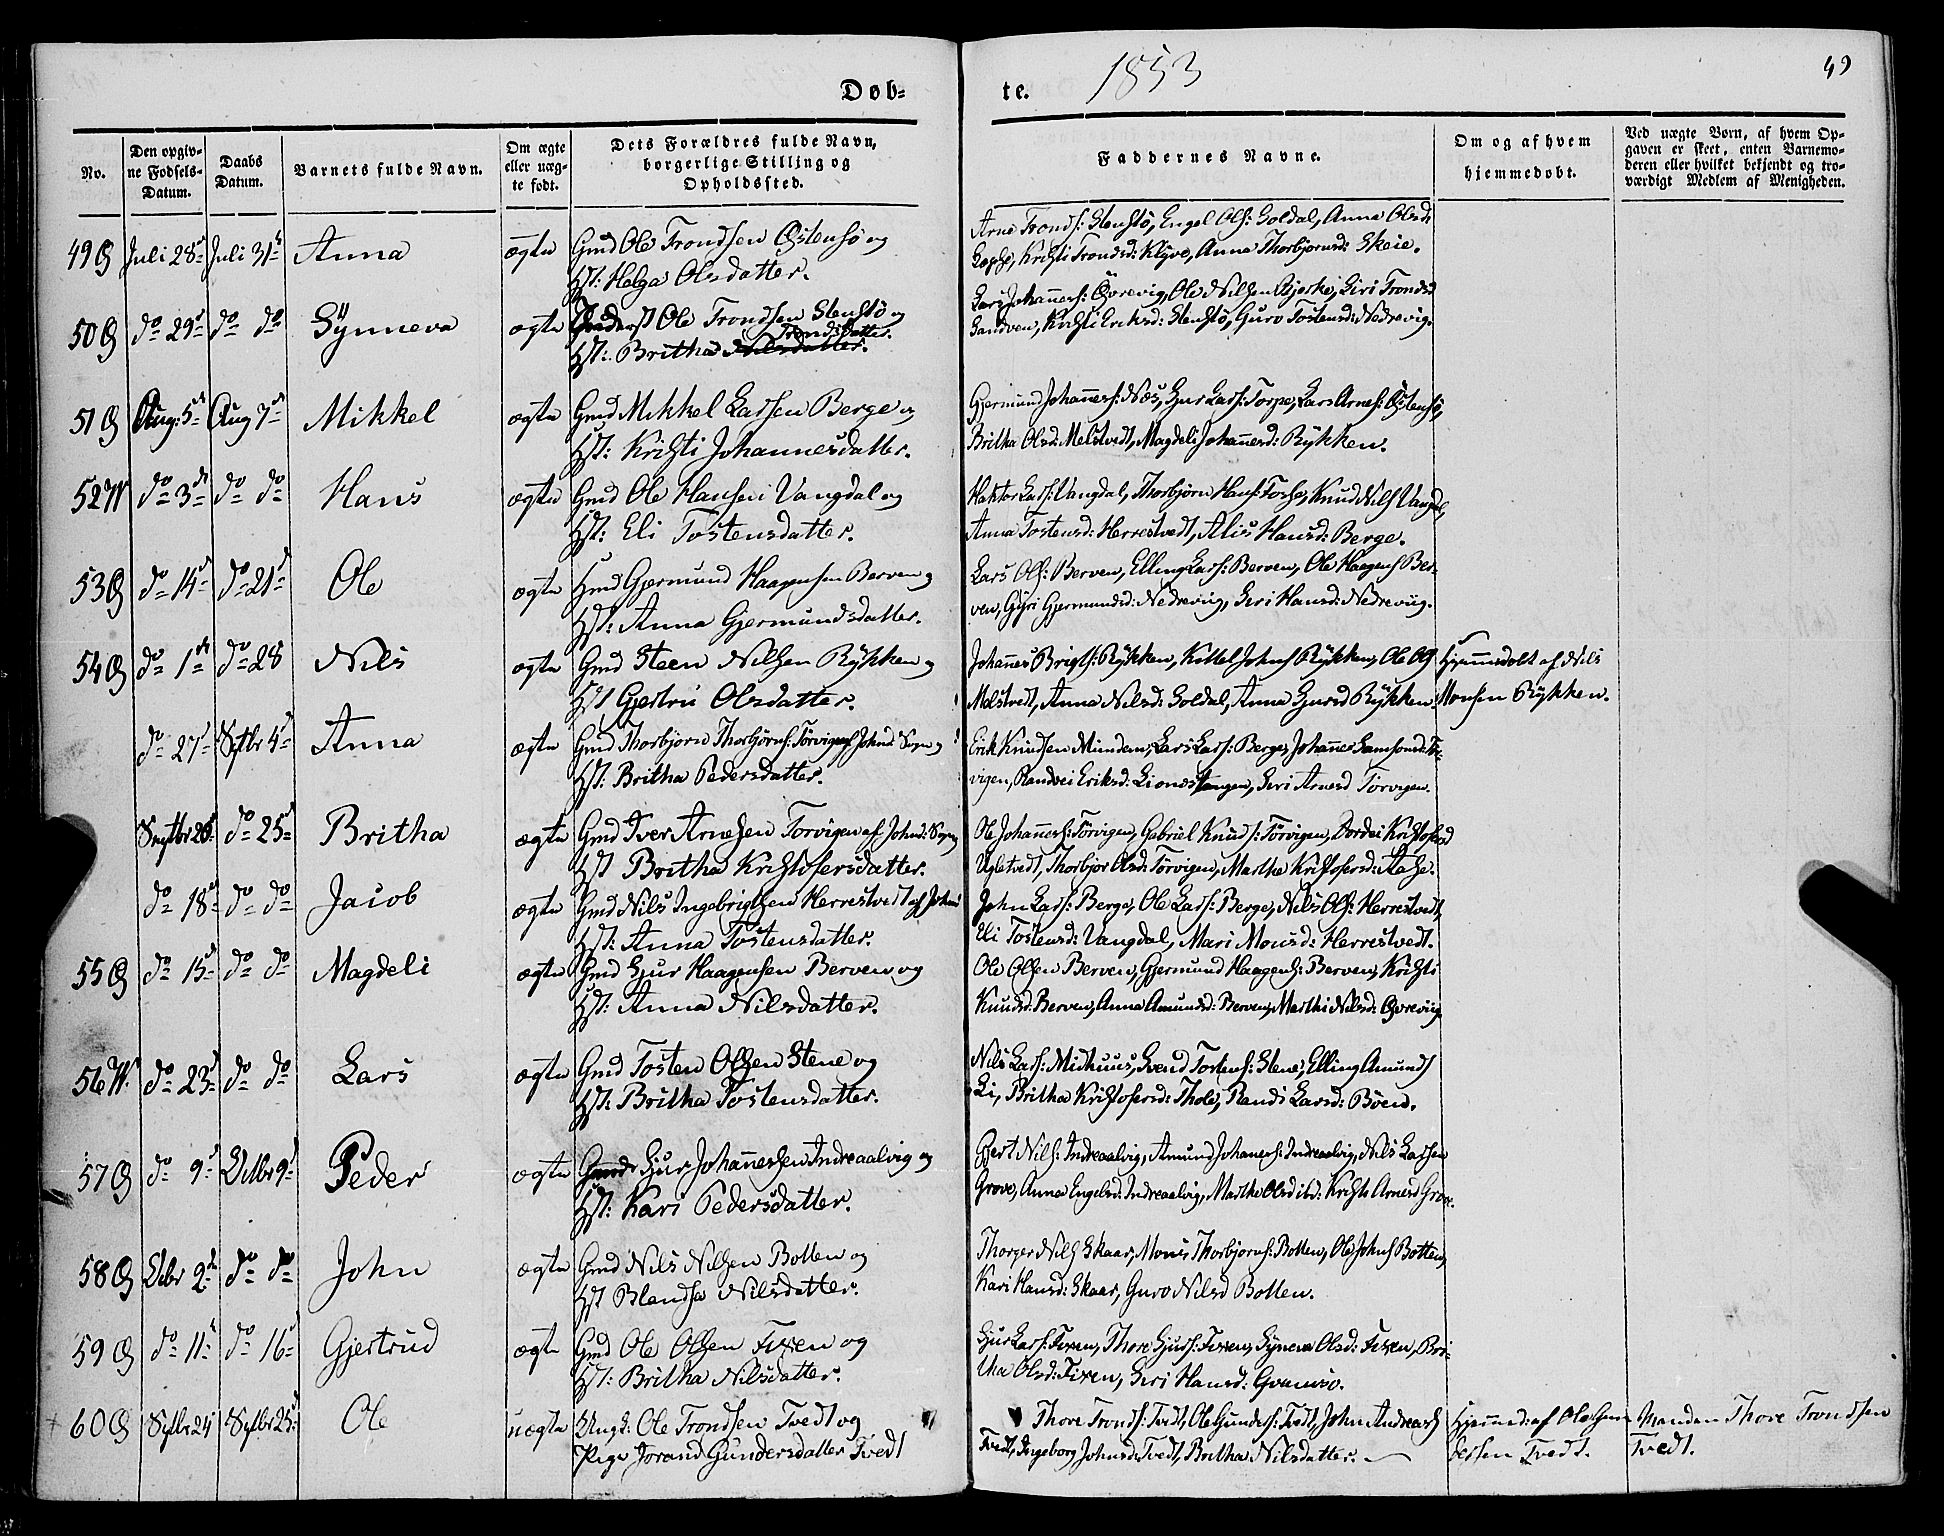 Døb-
te.
1853
49
No.
Den opgiv-
ne Fødsels-
Datum.
Daabs
Datum.
Barnets fulde Navn.
Om ægte
eller uæg-
te født.
Dets Forældres fulde Navn,
borgerlige Stilling og
Opholdssted.
Faddernes Navne.
Om og af hvem
hjemmedøbt.
Ved uægte Børn, af hvem Op-
gaven er skeet, enten Barnemo-
deren eller hvilket bekjendt og tro-
værdigt Medlem af Menigheden.
49 Juli 28 Juli 31 Anna ægte Gmd Ole Trondsen Østensø og
Hst: Helga Olsdatter.
Arne Tronds: Stenstø, Engel Ols: Soldal, Anna Olsd:
Kristi Trondsd: Klyve, Anna Thorbjørnsd: Skeie.
50 do 29 do do Synneva ægte Ole Trondsen Stenstø og
Trondsdatter.
Hst: Britha Nilsdatter.
Lars Johannes: Øvrevig, Ole Nilsen Bjerke, Siri Trondsd
Sandven, Kristi Eriksd: Stenstø, Guro Tostensd: Nedrevig.
51 Aug: 5 Aug 7 Mikkel ægte Gmd Mikkel Larsen Berge og
Hst: Kristi Johannesdatter.
Gjermund Johannes: Næs, Sjur Lars: Torpe, Lars Arnes: Østensø,
Britha Olsd: Melstvedt, Magdeli Johannesd: Rykken.
52 do 3 do do Hans ægte Gmd Ole Hansen Vangdal og
Hst: Eli Tostensdatter.
Lars: Vangdal, Thorbjørn Hans: Knud Nils Vangdal,
Anna Tostensd: Herrestvedt, Alis Hansd: Berge.
53 do 14 do 21 Ole ægte Hmd Gjermund Haagensen Berven og
Hst: Anna Gjermundsdatter.
Lars Ols: Berven, Elling Lars: Berven, Ole Haagens Ber-
ven, Gyri Gjermundsd: Nedrevig, Seri Hansd: Nedrevig.
54 do 1 do 28 Nils ægte Gmd Steen Nilsen Rykken og
Hst Gjertru Olsdatter.
Johannes Brigts: Rykken, Kittel Johns Rykken, Ole Ols Hjemmedøbt af Nils
Melstvedt, Anna Nilsd: Soldal, Anna Sjursd Rykken. Monsen Rykken.
do 27 Septbr 4 Anna ægte Gmd Thorbjørn Thorbjørns: Tørvigen af Johnd: Sogn og
Hst: Britha Pedersdatter.
Erik Knudsen Mundem, Lars Lars: Berge, Johannes Samsons: Tør-
vigen, Randvei Eriksd: Lionestangen, Seri Arnesd Tørvigen.
Septbr 20 do 25 Britha ægte Gmd Iver Arnesen Torvigen af Johnd: Sogn
Hst Britha Kristofersdatter.
Ole Johannes: Tørvigen, Gabriel Knuds: Tørvigen, Dordei Kristofersd
Thorbjør Olsd: Tørvigen, Marthe Kristofersd:
do 18 do do Jacob ægte Gmd Nils Ingebrigtsen Herrestvedt af Johnd
Hst: Anna Tostensdatter.
John Lars: Berge, Ole Lars: Berge, Nils Ols: Herrestvedt,
Eli Tostensd: Vangdal, Mari Monsd: Herrestvedt.
55 do 15 do do Magdeli ægte Gmd Sjur Haagensen Berven og
Hst: Anna Nilsdatter.
Ole Olsen Berven, Gjermund Haagens: Berven, Kristi
Knudsd: Berven, Anna Amundsd: Berven, Marthi Nilsd: Øvrevig
56 do 23 do do Lars ægte Gmd Tosten Olsen Stene og
Hst: Britha Tostensdatter.
Nils Lars: Midhuus, Svend Tostens: Stene, Elling Amunds
Li, Britha Kristofersd: Randi Larsd: Bøen.
57 do 9 Octbr 9 Peder ægte Gmd Sjur Johannessen Indreaalvig og
Hst: Kari Pedersdatter.
Gjert Nils: Indreaalvig, Amund Johannes: Indreaalvig, Nils Larsen
Grove, Anna Engelsd: Indreaalvig, Marthe Olsd ibd: Kristi Arnesd Grove.
58 Octbr 2 do do John ægte Gmd Nils Nilsen Botten og
Hst Nilsdatter.
Thorger Nils Skaar, Mons Thorbjørns: Botten, Ole Johns Botten,
Kari Hansd: Skaar, Guro Nilsd Botten.
59 do 11 do 16 Gjertrud ægte Gmd Ole Olsen Fixen og
Hst: Britha Nilsdatter.
Sjur Lars: Fixen, Thore Sjurs: Fixen, Synneva Olsd: Fixen, Bri-
tha Olsd: Fixen, Seri Hansd:
60 Septbr 24 Septbr 25 Ole uægte Ungk: Ole Trondsen Tvedt og
Pige Jorand Gundersdatter Tvedt
Thore Tronds: Tvedt, Ole Gunders: Tvedt, John Andreas Hjemmed: af Ole Manden Thore Trondsen
Tvedt, Ingeborg Johnsd: Tvedt, Britha Nilsdatter. Tvedt. Tvedt.